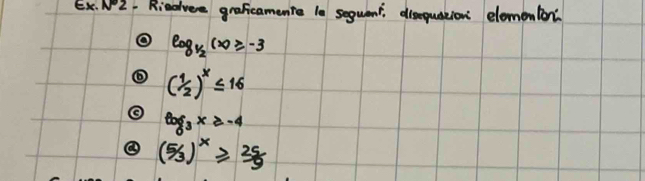 Ex. N°2 - Risolvere graficamente le seguent. disequazioni elementari.
ⓐ log₁/₂ (x) ≥ -3
ⓑ (1/2)ˣ ≤ 16
ⓒ log₃ x ≥ -4
ⓓ (5/3)ˣ ≥ 25/9